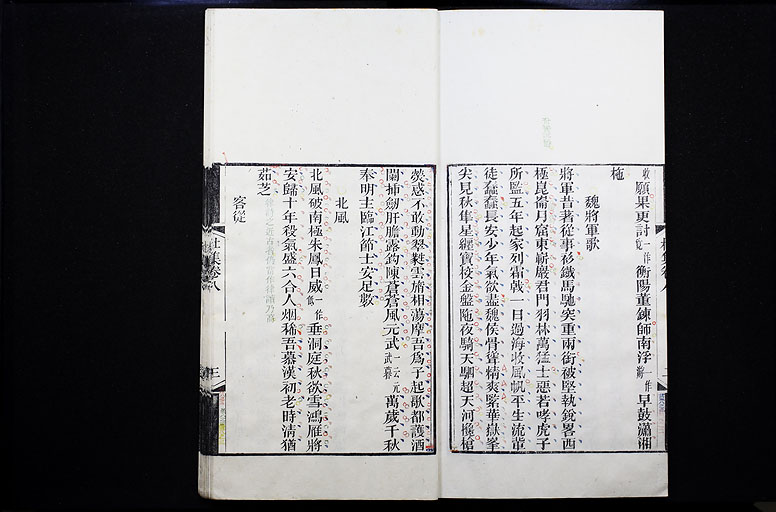 願果更討一作覓衡陽董鍊師南浮一作遊早鼓瀟湘
柂
魏將軍歌
將軍昔著從事衫鐵馬馳突重兩銜被堅執銳畧西
極崑崙月窟東嶄巖君門羽林萬猛士惡若哮虎子
所監五年起家列霜戟一日過海收風帆平生流輩
徒蠢蠢長安少年氣欲盡魏侯骨聳精爽緊華嶽峯
尖見秋隼星纏寶校金盤陁夜騎天駟超天河欃槍
熒惑不敢動翠蕤雲旓相蕩摩吾爲子起歌都護酒
闌插劒肝膽露鈎陳蒼蒼風元武一云元武暮萬歲千秋
奉明主臨江節士安足數
北風
北風破南極朱鳳日威一作垂洞庭秋欲雪鴻雁將
安歸十年殺氣盛六合人烟稀吾慕漢初老時清猶
茹芝
客從
杜集卷八
三